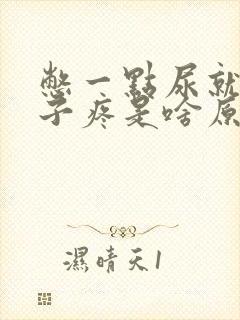 憋一點尿就
子疼是啥原
濕晴天1